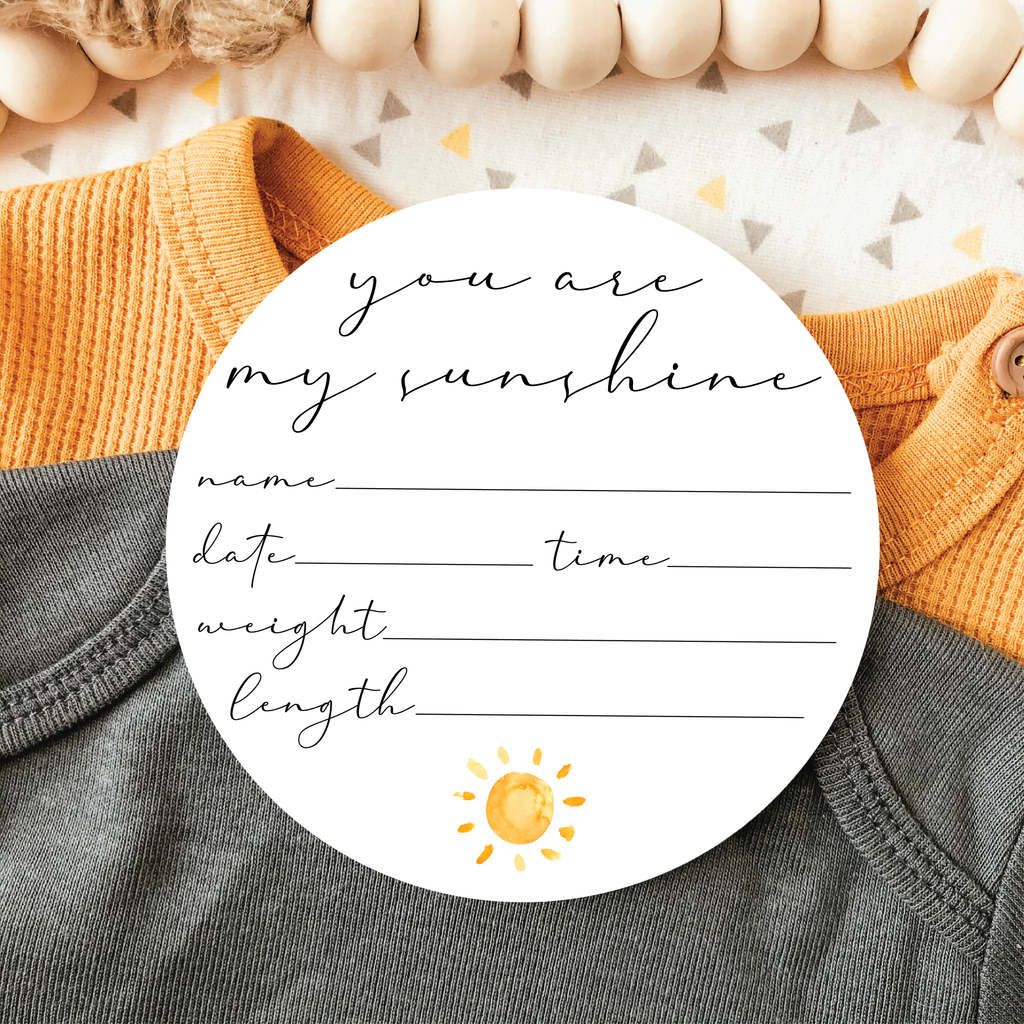 you are
my sunshine
name
date time
weight
length